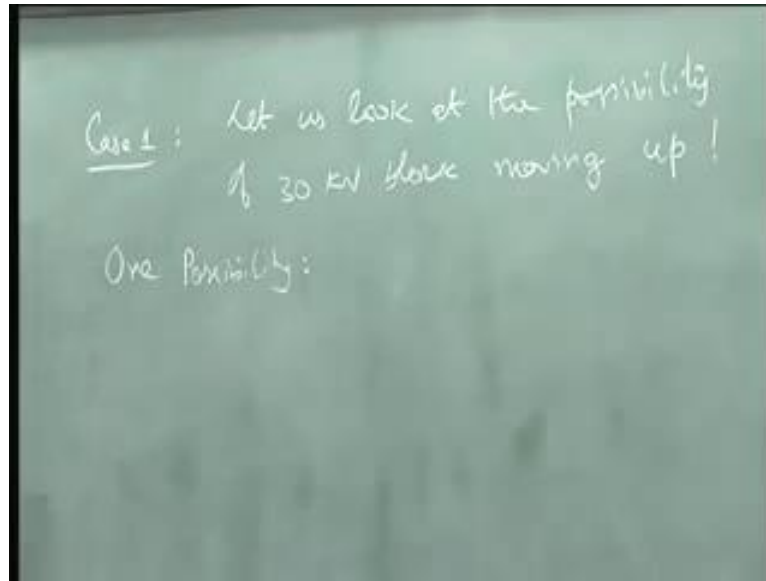 Case 1: Let us look at the possibility
of 30 kN block moving up!
One Possibility: